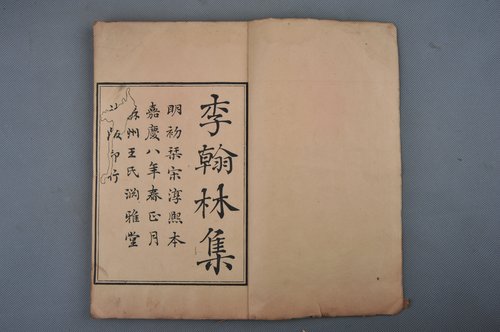 李翰林集
明初栞宋淳熙本
嘉慶八年春正月
州王氏淵雅堂
印行